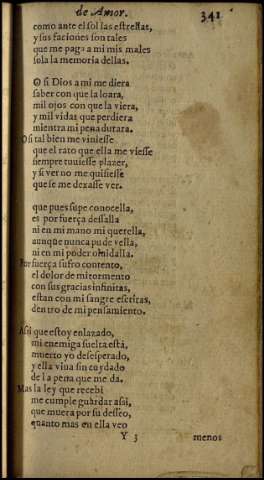 de Amor. 341
como ante el sol las estrellas,
y sus faciones son tales
que me paga a mi mis males
sola la memoria dellas.
O si Dios a mi me diera
saber con que la loara,
mil ojos con que la viera,
y mil vidas que perdiera
mientra mi pena durara.
O si tal bien me viniesse
que el rato que ella me viesse
siempre tuuiesse plazer,
y si ver no me quisiesse
que se me dexasse ver.
que pues supe conocella,
es por fuerça dessalla
ni en mi mano mi querella,
aunque nunca pude vella,
ni en mi poder oluidalla.
Por fuerça sufro contento,
el dolor de mi tormento
con sus gracias infinitas,
estan con mi sangre escritas,
dentro de mi pensamiento.
Assi que estoy enlazado,
mi enemiga suelta està,
muerto yo desesperado,
y ella viua sin cuydado
de la pena que me da.
Mas la ley que recebi
me cumple guardar assi,
que muera por su desseo,
quanto mas en ella veo
Y 3 menos